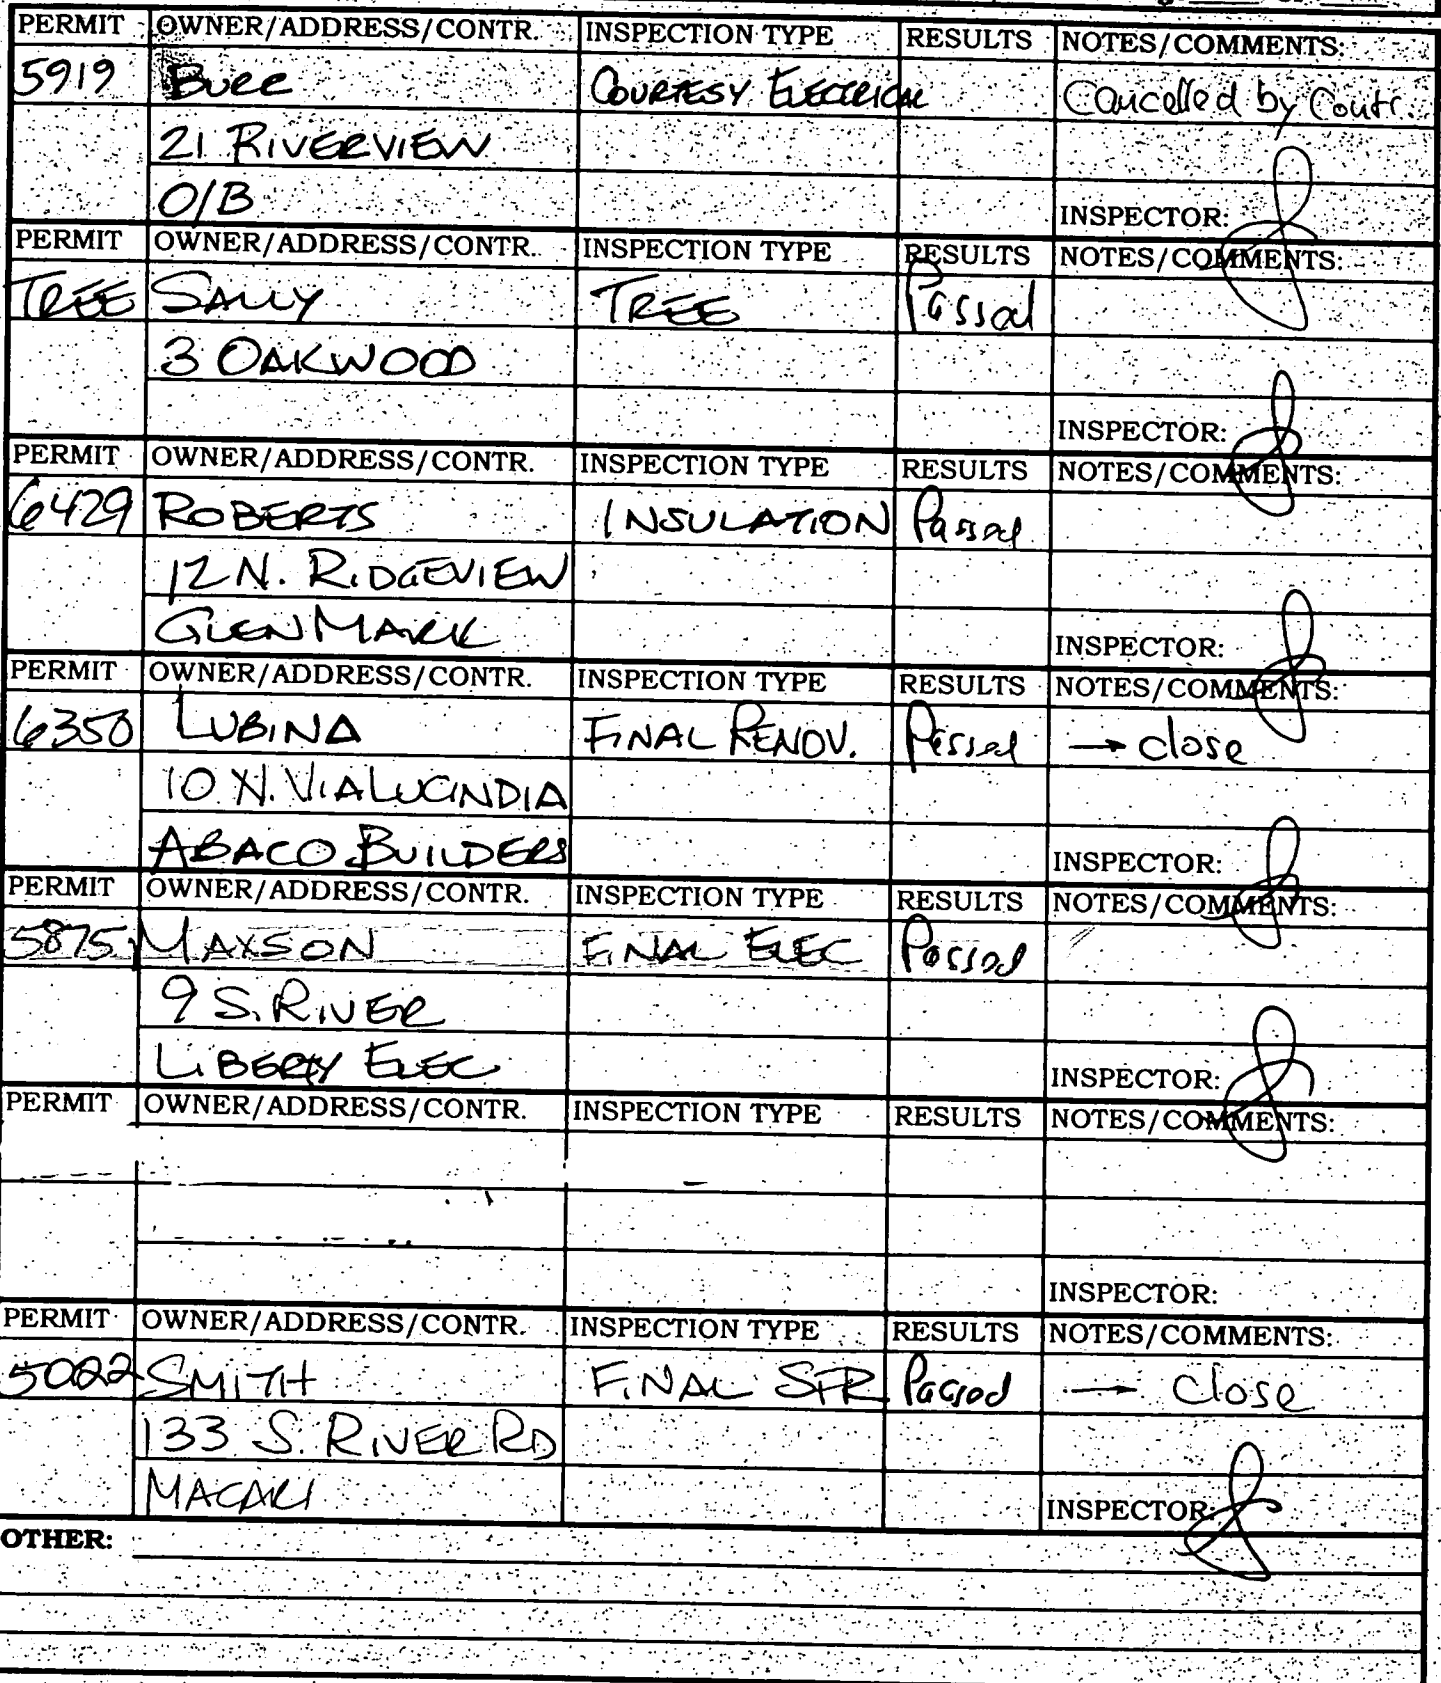 PERMIT OWNER/ADDRESS/CONTR. INSPECTION TYPE RESULTS NOTES/COMMENTS:
5919 BURR COURTESY ELECTRICAL Cancelled by Contr.
21 RIVERVIEW
O/B INSPECTOR:
PERMIT OWNER/ADDRESS/CONTR. INSPECTION TYPE RESULTS NOTES/COMMENTS:
TREE SALLY TREE Passed
3 OAKWOOD
INSPECTOR:
PERMIT OWNER/ADDRESS/CONTR. INSPECTION TYPE RESULTS NOTES/COMMENTS:
6429 ROBERTS INSULATION Passed
12 N. RIDGEVIEW
GLENMARK INSPECTOR:
PERMIT OWNER/ADDRESS/CONTR. INSPECTION TYPE RESULTS NOTES/COMMENTS:
6350 LUBINA FINAL RENOV. Passed → close
10 N. VIA LUCINDIA
ABACO BUILDERS INSPECTOR:
PERMIT OWNER/ADDRESS/CONTR. INSPECTION TYPE RESULTS NOTES/COMMENTS:
5875 MAXSON FINAL ELEC Passed
9 S. RIVER
LIBERTY ELEC INSPECTOR:
PERMIT OWNER/ADDRESS/CONTR. INSPECTION TYPE RESULTS NOTES/COMMENTS:
INSPECTOR:
PERMIT OWNER/ADDRESS/CONTR. INSPECTION TYPE RESULTS NOTES/COMMENTS:
5022 SMITH FINAL SFR Passed → close
133 S. RIVER RD
MACARI INSPECTOR:
OTHER: